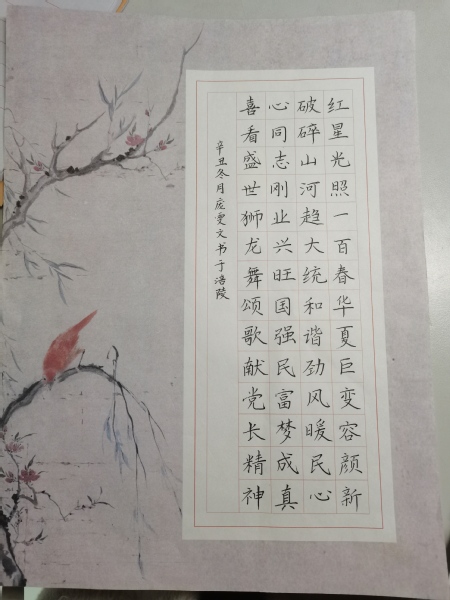 红星光照一百春华夏巨变容颜新
破碎山河趋大统和谐劲风暖民心
心同志刚业兴旺国强民富梦成真
喜看盛世狮龙舞颂歌献党长精神
辛丑冬月文书于涪陵